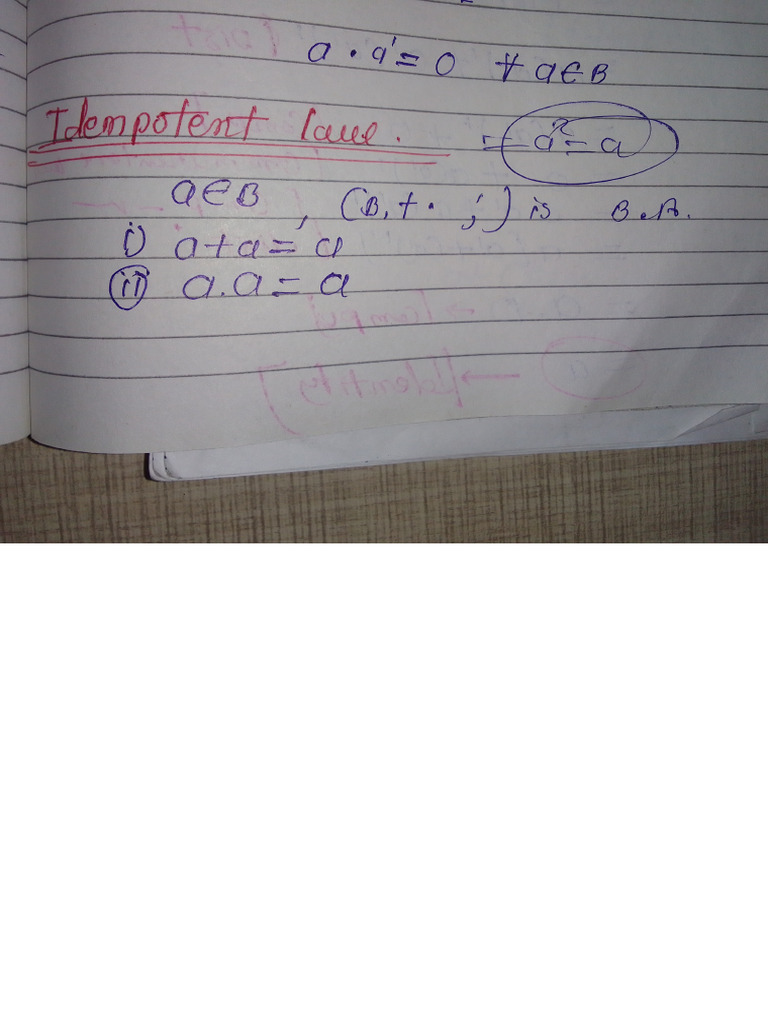 a · a' = 0 ∀ a∈B
Idempotent law. = a² = a
a∈B, (B, + · , ') is B.A.
i) a+a = a
ii) a.a = a